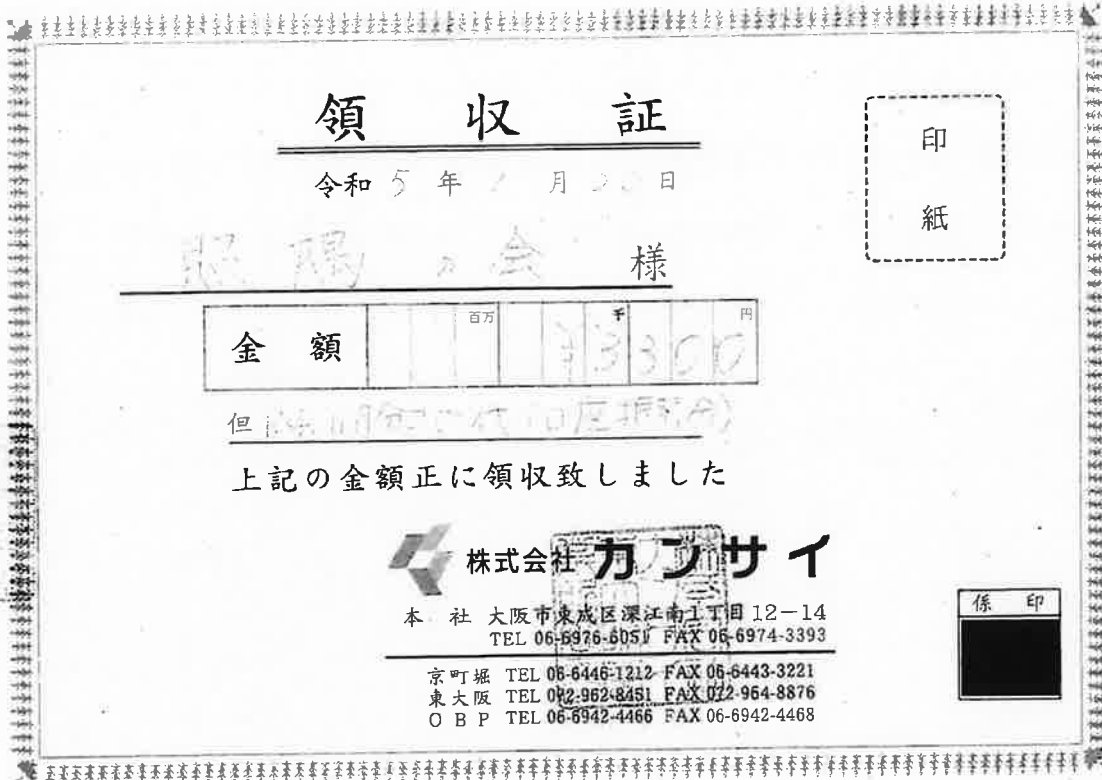 領収証
印紙
令和5年 月 日
の会 様
金額 百万 千 円
¥3300
但
上記の金額正に領収致しました
株式会社カンサイ
本社 大阪市東成区深江南1丁目12-14
TEL 06-6976-6051 FAX 06-6974-3393
京町堀 TEL 06-6446-1212 FAX 06-6443-3221
東大阪 TEL 072-962-8451 FAX 072-964-8876
OBP TEL 06-6942-4466 FAX 06-6942-4468
係印